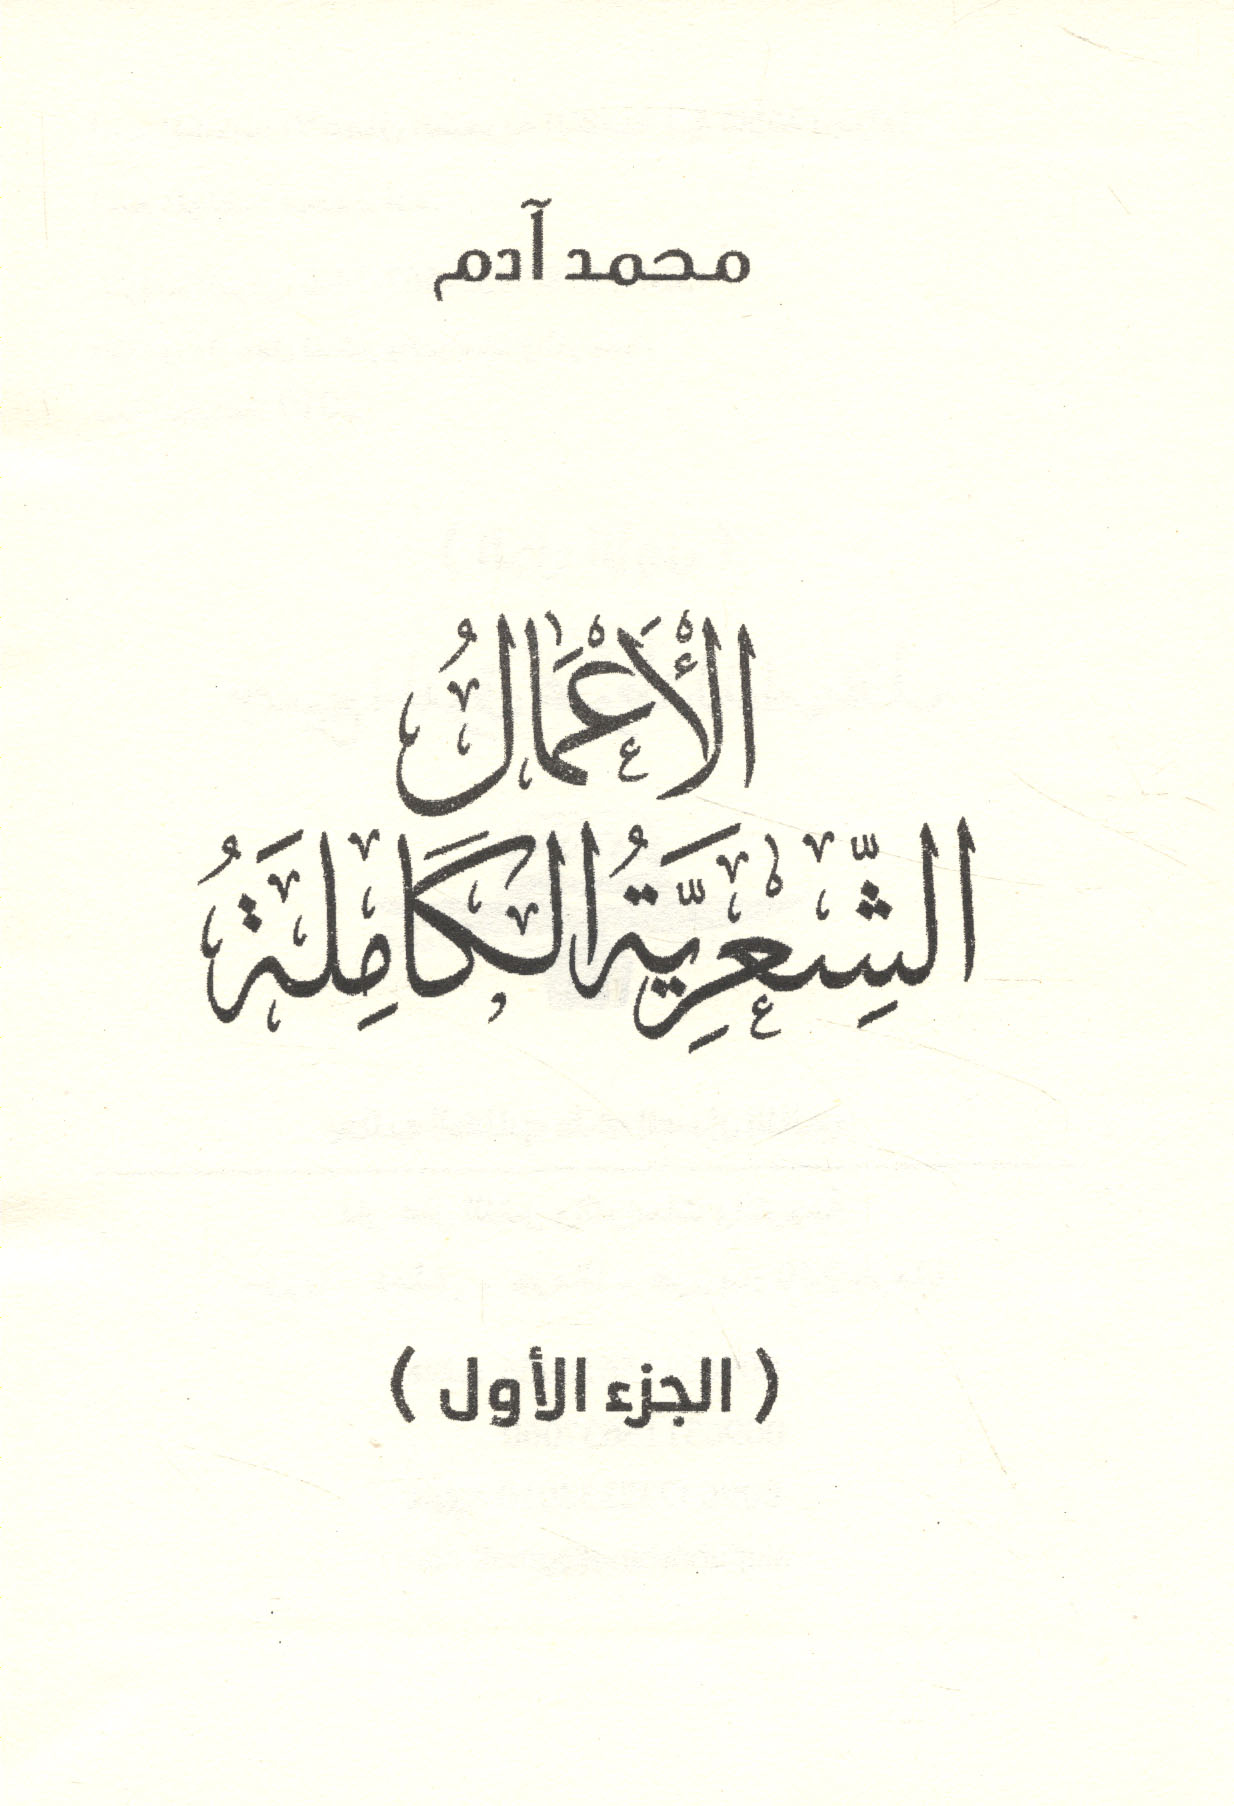 محمد آدم
الأَعْمَالُ
الشِّعْرِيَّةُ الكَامِلَةُ
( الجزء الأول )